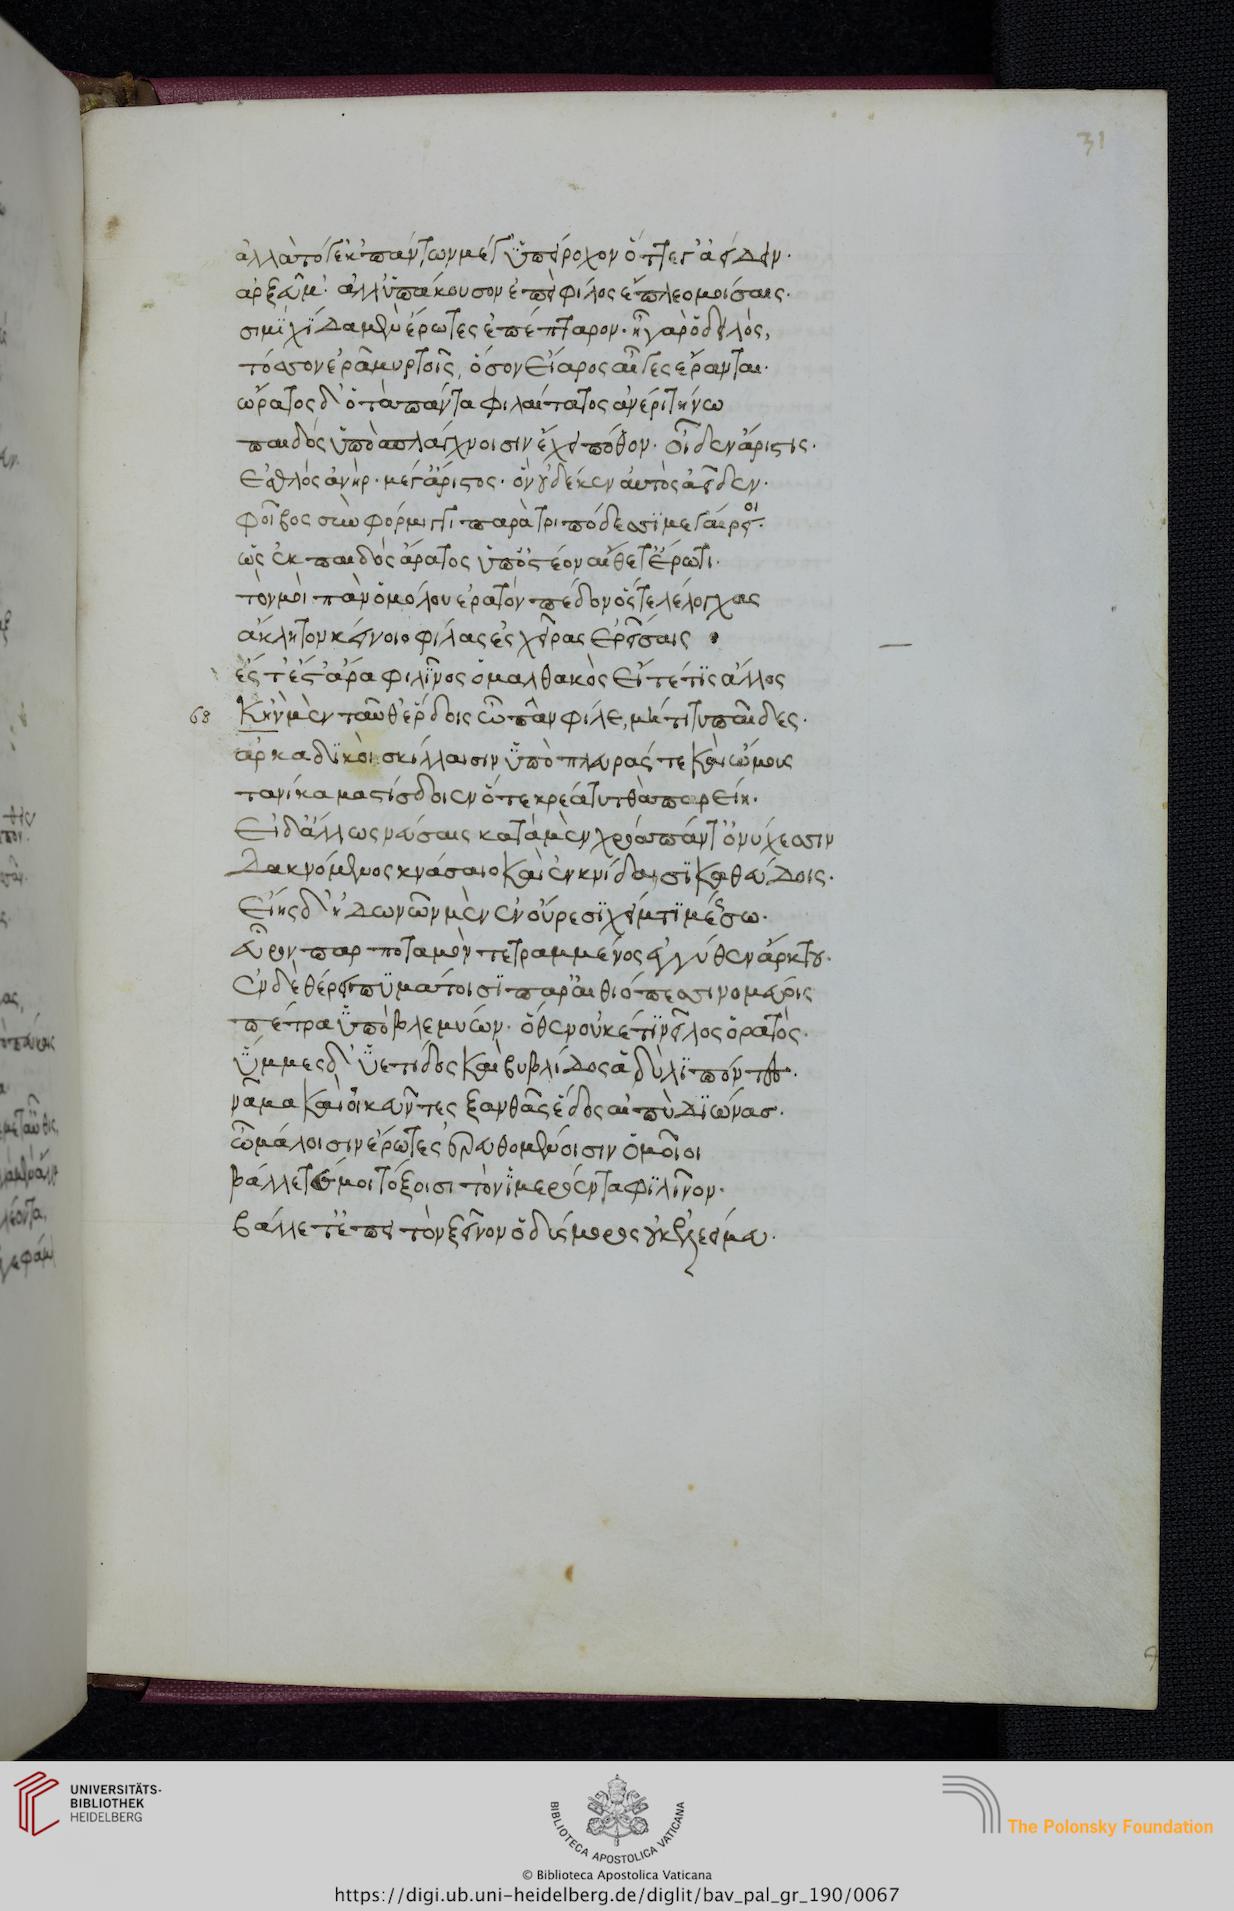 31
ἀλλὰ τόγ' ἐκ πάντων μέγ' ὑπείροχον ὅττι γ' ἀείδειν·
ἀρξεῦμ'· ἀλλ' ὑπάκουσον ἐπεὶ φίλος ἔπλεο μοίσαις·
σιμιχίδα μὲν ἔρωτες ἐπέπταρον· ἦ γὰρ ὁ δειλὸς,
τόσσον ἐρᾶ μυρτοῖς, ὅσον εἴαρος αἶγες ἔρανται·
ὤρατος δ' ὁ τὰ πάντα φιλαίτατος ἀνέρι τήνω
παιδὸς ὑπὸ σπλάγχνοισιν ἔχει πόθον· οἶδεν ἄριστις·
ἐσθλὸς ἀνὴρ· μέγ' ἄριστος· ὃν οὐδέ κεν αὐτὸς ἀείδεν·
φοῖβος σὺν φόρμιγγι παρὰ τριπόδεσσι μεγαίροι·
ὡς ἐκ παιδὸς ἄρατος ὑπ' ὀστέον αἴθετ' ἔρωτι·
τόν μοι πὰν ὁμόλου ἐρατὸν πέδον ὅστε λέλογχας
ἄκλητον κείνοιο φίλας ἐς χεῖρας ἐρείσαις
εἴς τ' ἔστ' ἄρα φιλῖνος ὁ μαλθακὸς εἴτε τὶς ἄλλος
68 Κἢν μὲν ταῦθ' ἔρδοις ὦ πᾶν φίλε, μή τι τυ παῖδες·
ἀρκαδικοὶ σκίλλαισιν ὑπὸ πλευράς τε καὶ ὤμοις
τανίκα μαστίσδοιεν ὅτε κρέα τυτθὰ παρείη·
εἰ δ' ἄλλως νεύσαις κατὰ μὲν χρόα πάντ' ὀνύχεσσιν
δακνόμενος κνάσαιο καὶ ἐν κνίδαισι καθεύδοις·
εἴης δ' ἠδωνῶν μὲν ἐν οὔρεσι χείματι μέσσω·
εὖρον παρ ποταμὸν τετραμμένος ἐγγύθεν ἄρκτου·
ἐν δὲ θέρει πυμάτοισι παρ' αἰθιόπεσσι νομεύοις
πέτρα ὑπὸ βλεμυέων· ὅθεν οὐκέτι νεῖλος ὁρατὸς·
ὔμμες δ' ὑετίδος καὶ βυβλίδος ἁδὺ λιπόντες·
νᾶμα καὶ οἰκεῦντες ξανθᾶς ἕδος αἰπὺ διώνας·
ὦ μάλοισιν ἔρωτες ἐρευθομένοισιν ὁμοῖοι
βάλλετέ μοι τόξοισι τὸν ἱμερόεντα φιλῖνον·
βάλλετ' ἐπεὶ τὸν ξεῖνον ὁ δύσμορος οὐκ ἐλεεῖ μευ·
UNIVERSITÄTS-
BIBLIOTHEK
HEIDELBERG
BIBLIOTECA APOSTOLICA VATICANA
The Polonsky Foundation
© Biblioteca Apostolica Vaticana
https://digi.ub.uni-heidelberg.de/diglit/bav_pal_gr_190/0067